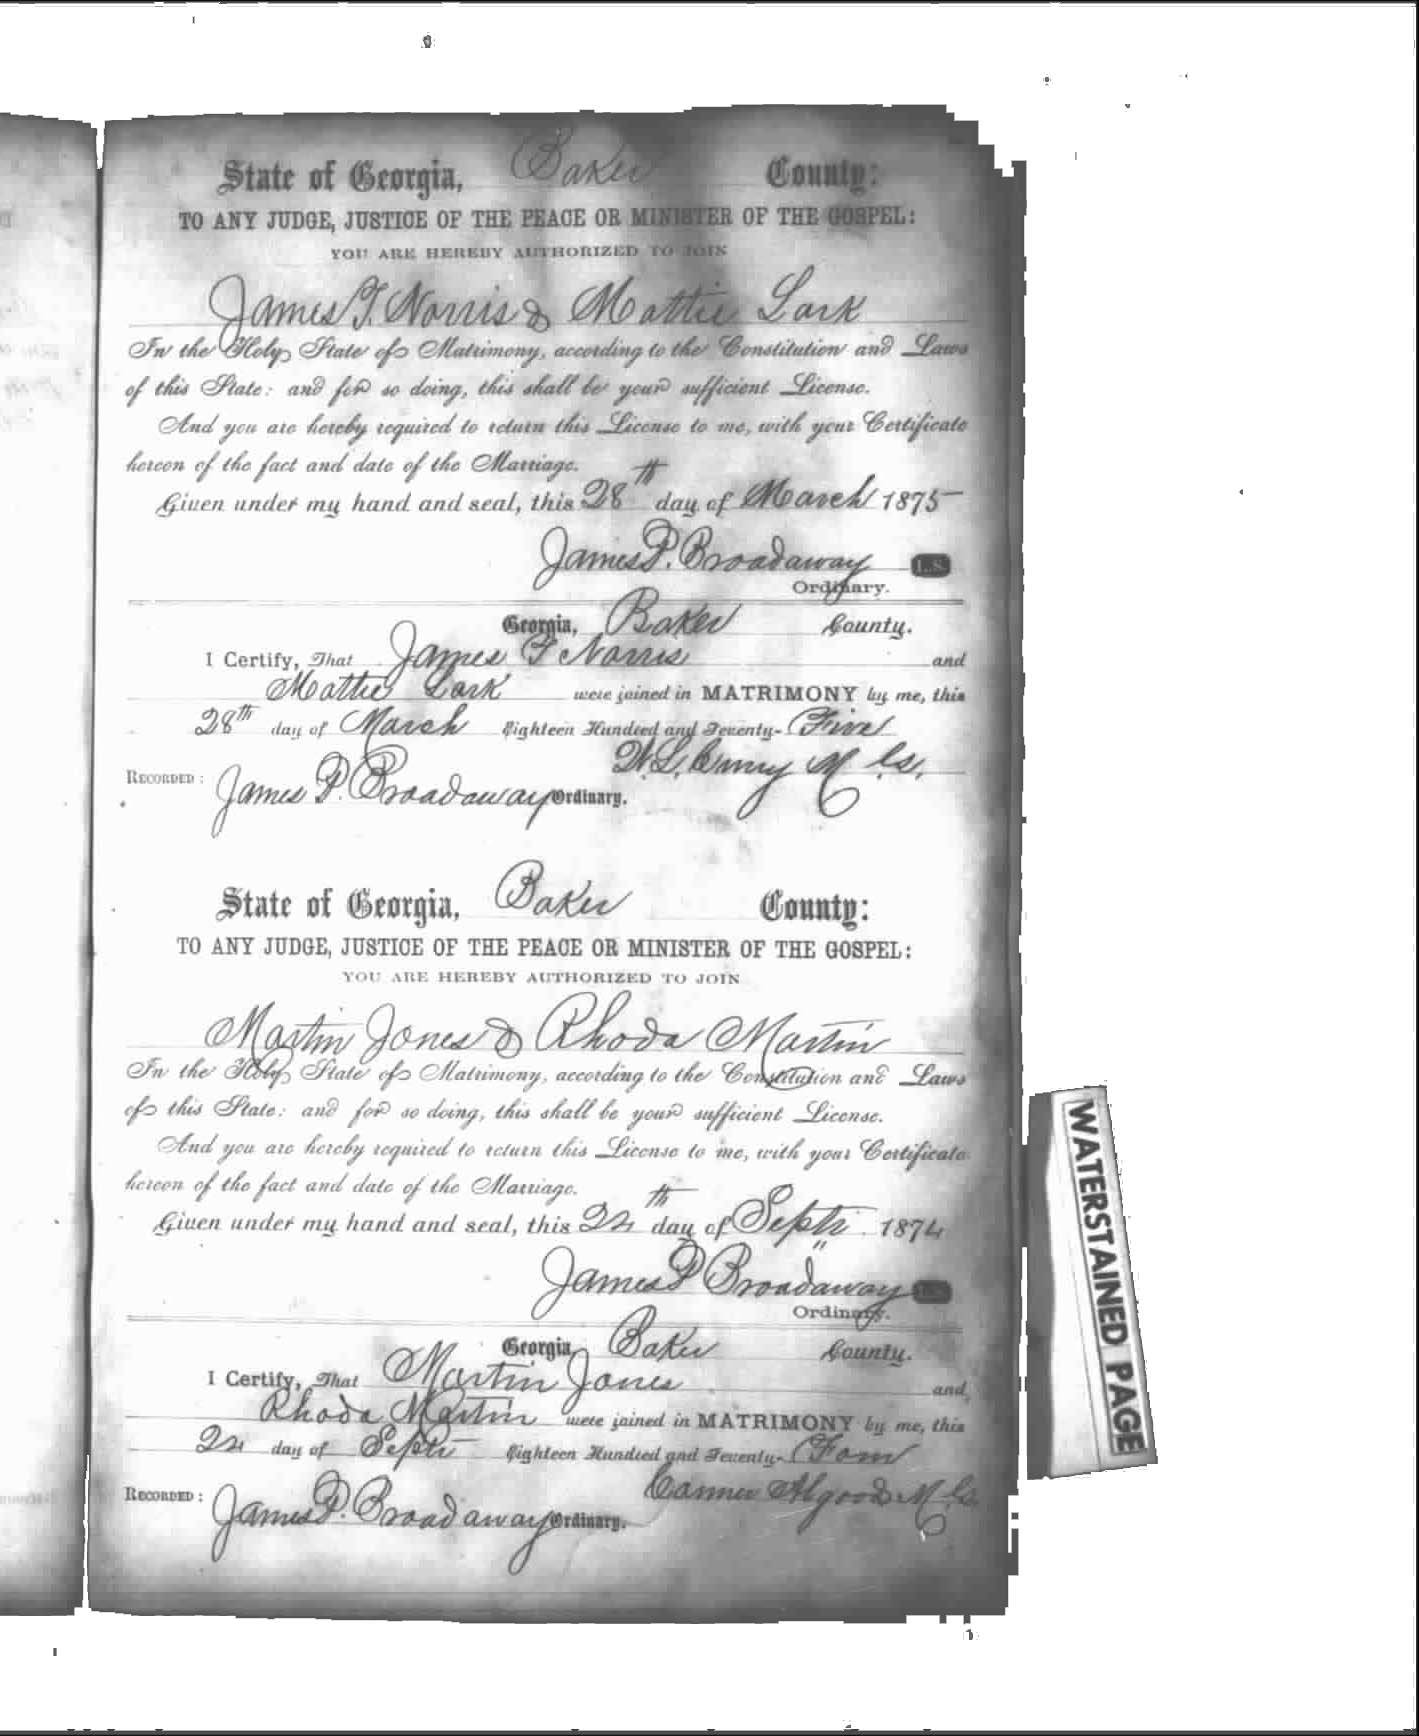 State of Georgia, Baker County:
TO ANY JUDGE, JUSTICE OF THE PEACE OR MINISTER OF THE GOSPEL:
YOU ARE HEREBY AUTHORIZED TO JOIN
James T. Norris & Mattie Lark
In the Holy State of Matrimony, according to the Constitution and Laws
of this State: and for so doing, this shall be your sufficient License.
And you are hereby required to return this License to me, with your Certificate
hereon of the fact and date of the Marriage.
Given under my hand and seal, this 28th day of March 1875
James P. Broadaway L.S.
Ordinary.
Georgia, Baker County.
I Certify, That James T Norris and
Mattie Lark were joined in MATRIMONY by me, this
28th day of March Eighteen Hundred and Seventy- Five
W. L. M. G.
RECORDED: James P. Broadaway Ordinary.
State of Georgia, Baker County:
TO ANY JUDGE, JUSTICE OF THE PEACE OR MINISTER OF THE GOSPEL:
YOU ARE HEREBY AUTHORIZED TO JOIN
Martin Jones & Rhoda Martin
In the Holy State of Matrimony, according to the Constitution and Laws
of this State: and for so doing, this shall be your sufficient License.
And you are hereby required to return this License to me, with your Certificate
hereon of the fact and date of the Marriage.
Given under my hand and seal, this 24th day of Septr 1874
James P Broadaway L.S.
Ordinary.
Georgia, Baker County.
I Certify, That Martin Jones and,
Rhoda Martin were joined in MATRIMONY by me, this
24 day of Septr Eighteen Hundred and Seventy- Four
Algood M. G.
RECORDED: James P. Broadaway Ordinary.
WATERSTAINED PAGE